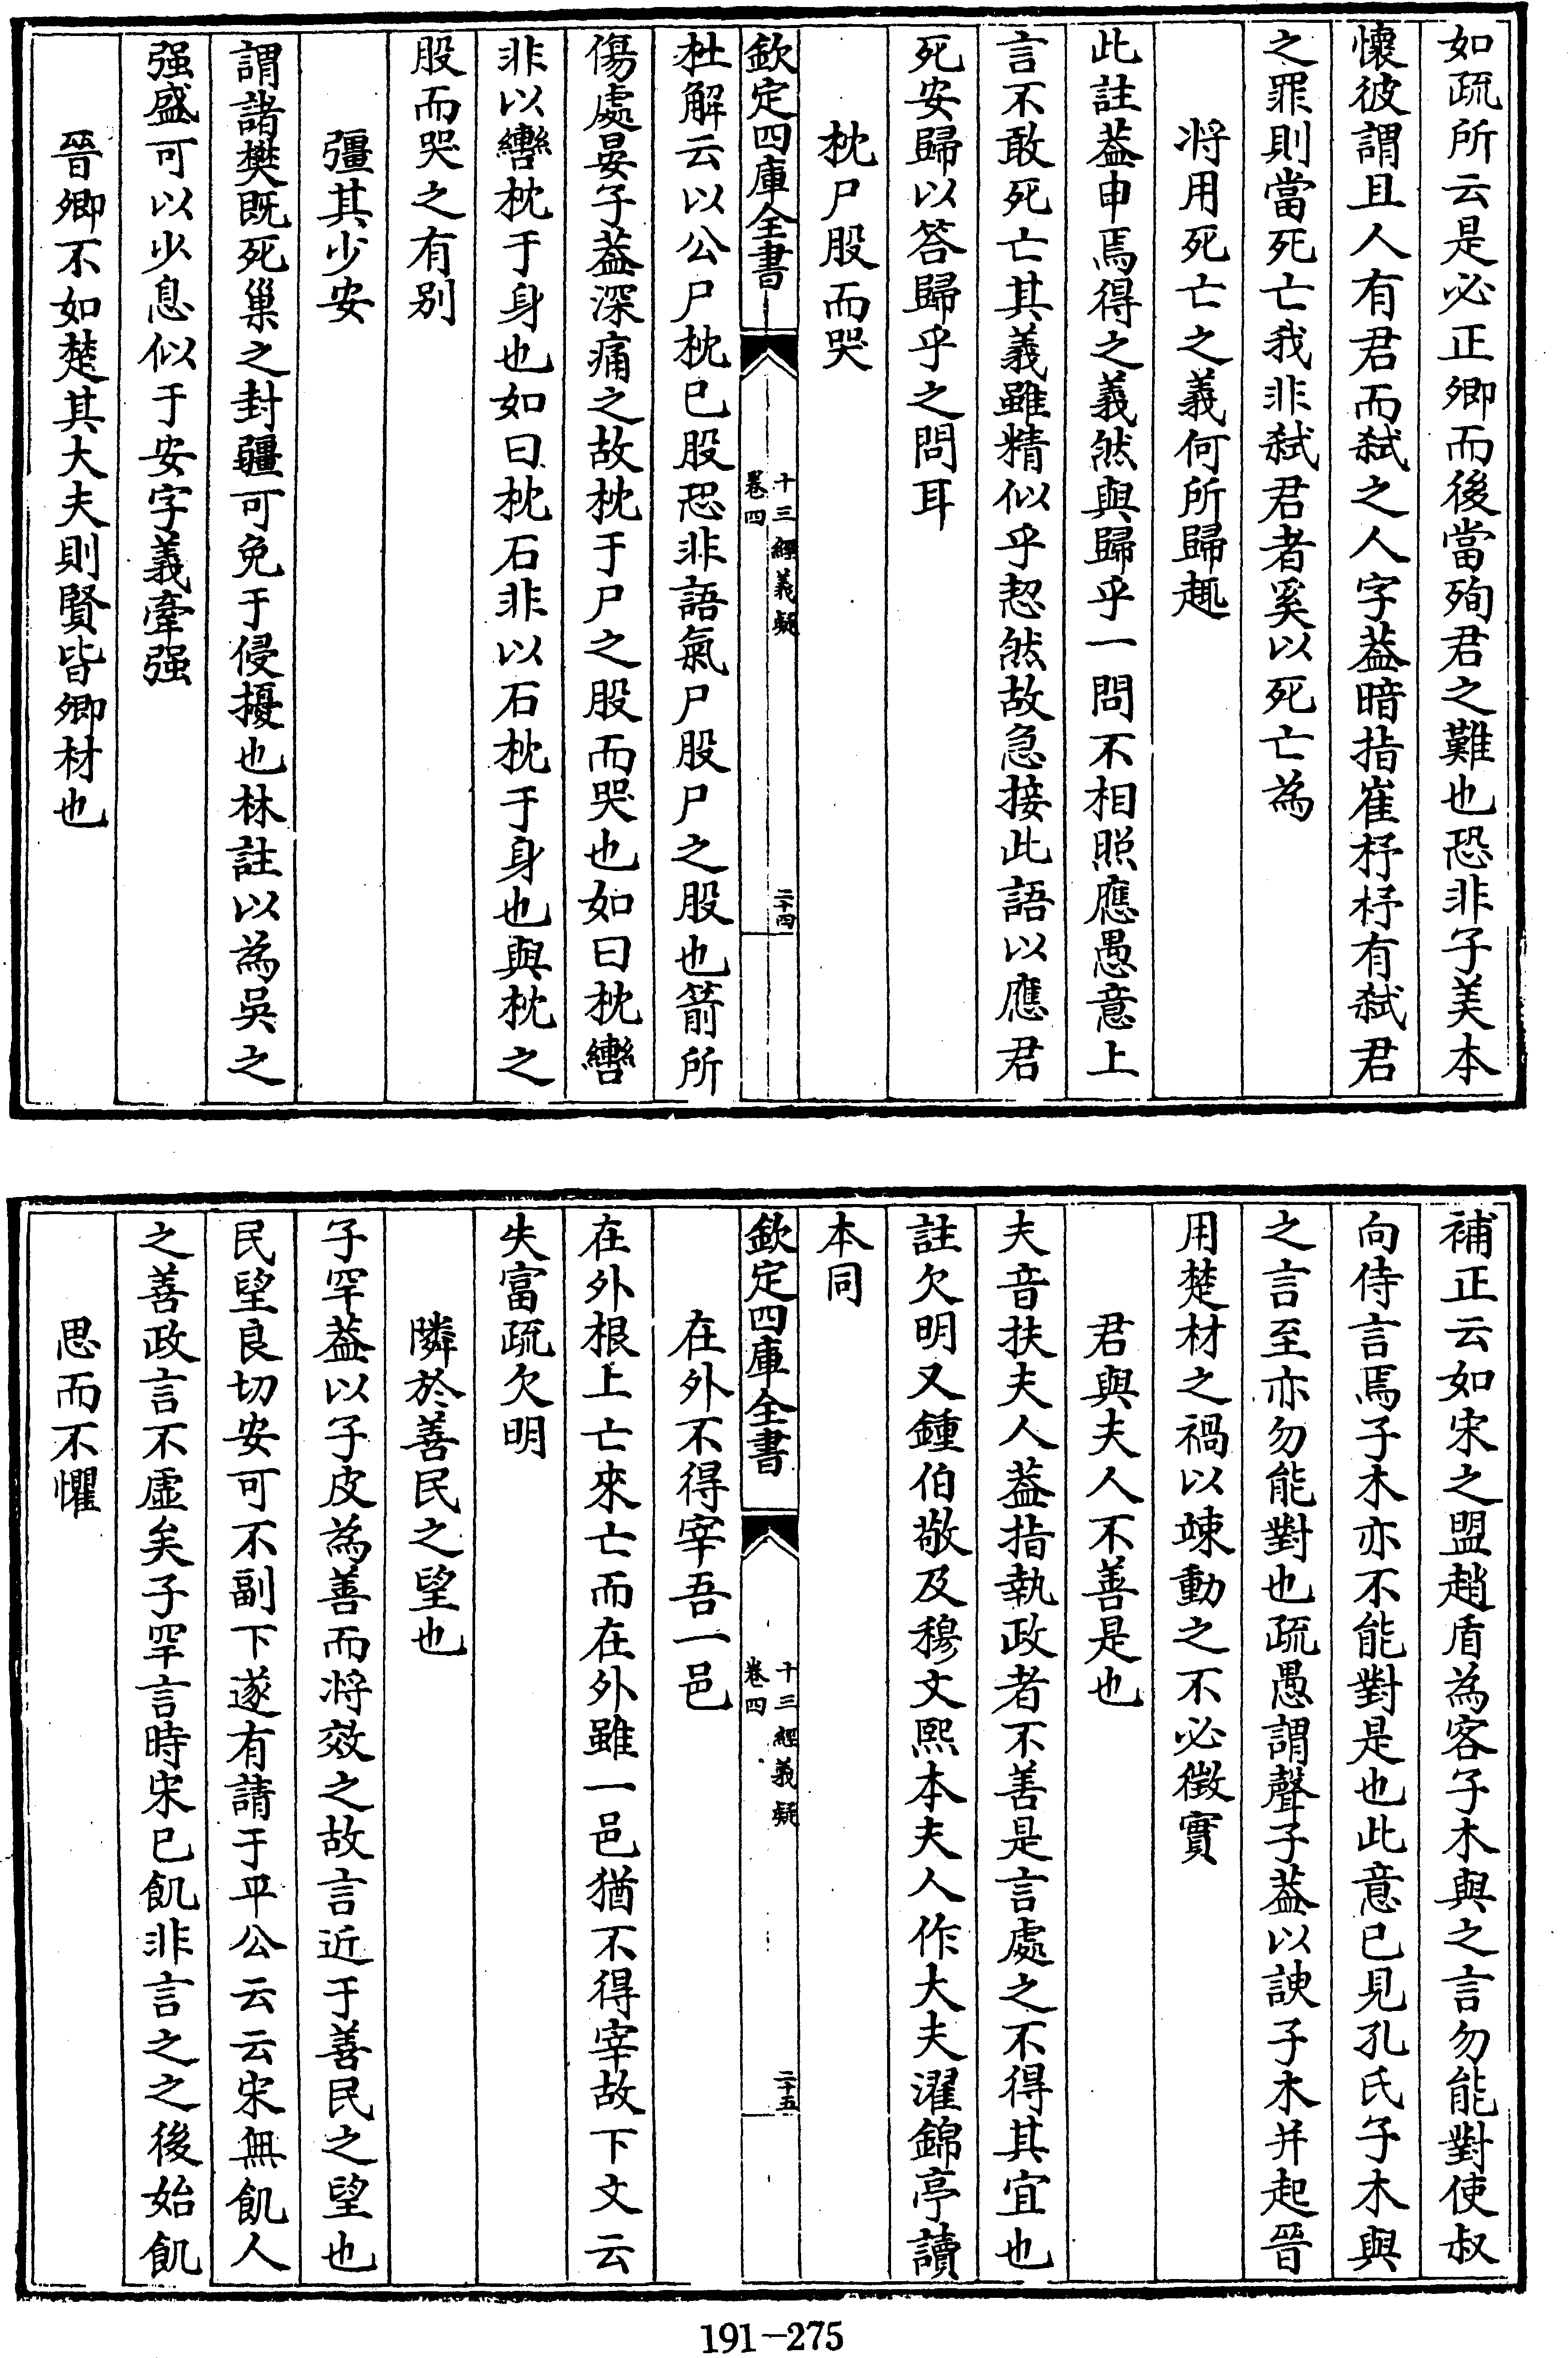 如疏所云是必正卿而後當殉君之難也恐非子美本
懷彼謂且人有君而弑之人字葢暗指崔杼杼有弑君
之罪則當死亡我非弑君者奚以死亡為
將用死亡之義何所歸趣
此註葢申焉得之義然與歸乎一問不相照應愚意上
言不敢死亡其義雖精似乎恝然故急接此語以應君
死安歸以答歸乎之問耳
枕尸股而哭
欽定四庫全書
十三經義疑
卷四
二十四
杜解云以公尸枕已股恐非語氣尸股尸之股也箭所
傷處晏子葢深痛之故枕于尸之股而哭也如曰枕轡
非以轡枕于身也如曰枕石非以石枕于身也與枕之
股而哭之有别
彊其少安
謂諸樊既死巢之封疆可免于侵擾也林註以為吳之
强盛可以少息似于安字義牽强
晉卿不如楚其大夫則賢皆卿材也
補正云如宋之盟趙盾為客子木與之言勿能對使叔
向侍言焉子木亦不能對是也此意已見孔氏子木與
之言至亦勿能對也疏愚謂聲子葢以諛子木并起晉
用楚材之禍以竦動之不必徵實
君與夫人不善是也
夫音扶夫人葢指執政者不善是言處之不得其宜也
註欠明又鍾伯敬及穆文熙本夫人作大夫濯錦亭讀
本同
欽定四庫全書
十三經義疑
卷四
二十五
在外不得宰吾一邑
在外根上亡來亡而在外雖一邑猶不得宰故下文云
失富疏欠明
隣於善民之望也
子罕葢以子皮為善而將效之故言近于善民之望也
民望良切安可不副下遂有請于平公云云宋無飢人
之善政言不虛矣子罕言時宋已飢非言之之後始飢
思而不懼
191-275